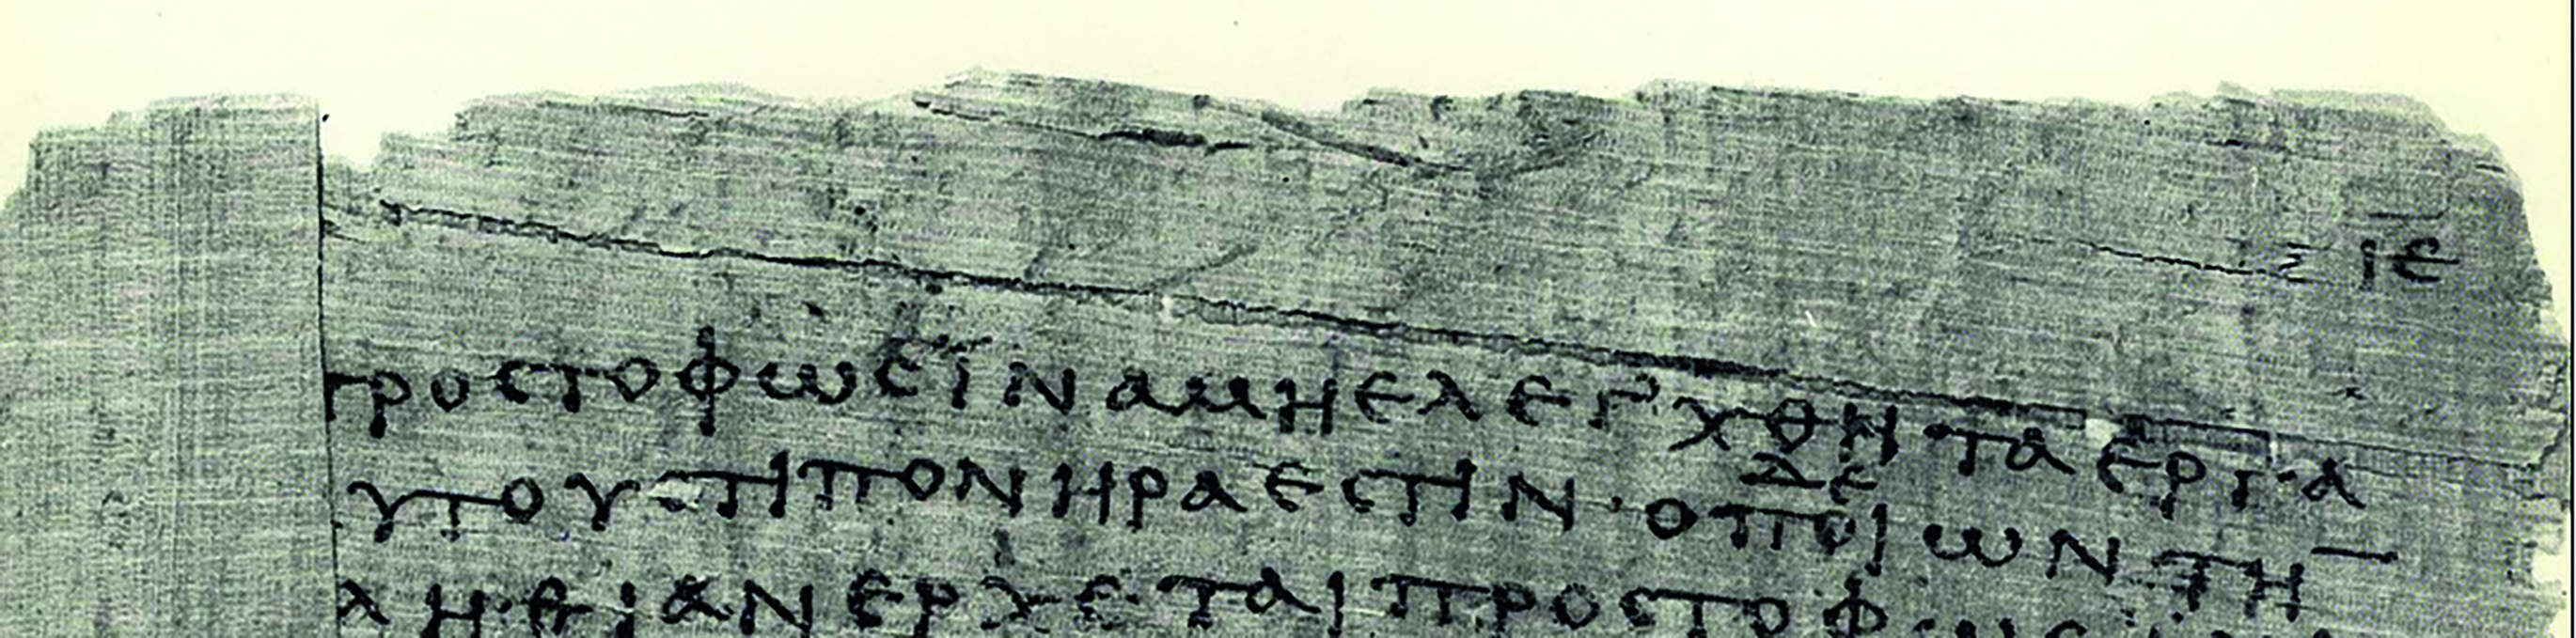 ΙΕ
ΠΡΟϹΤΟΦΩϹΪΝΑΜΗΕΛΕΓ'ΧΘΗΤΑΕΡΓΑ
ΔΕ
ΥΤΟΥΟΤΙΠΟΝΗΡΑΕϹΤΙΝ·ΟΠΟΙΩΝΤΗ‾
ΛΗΘΙΑΝΕΡΧΕΤΑΙΠΡΟϹΤΟΦΩϹ